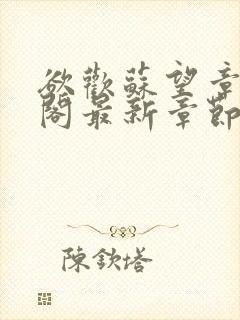 欲歡蘇望章
閣最新章節
陳欽塔